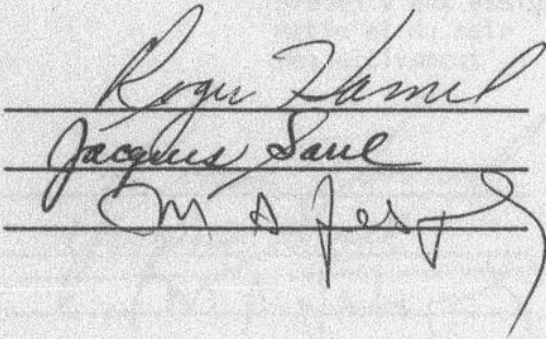 Roger Hamel
Jacques Saul
M A